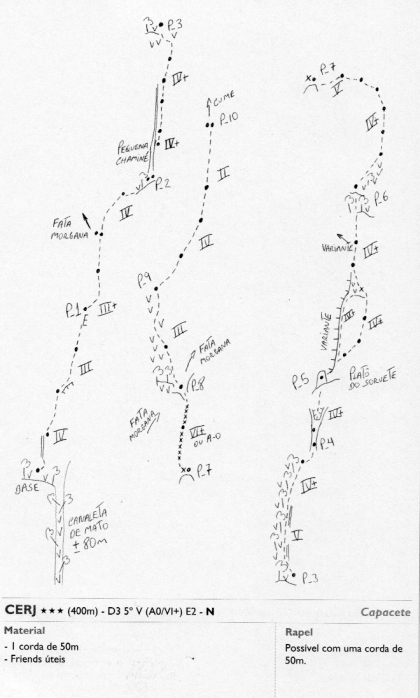 P_3
IV+
PEQUENA
CHAMINÉ
IV+
P_2
IV
FATA
MORGANA
P_1
E
III+
III
IV
BASE
CANALETA
DE MATO
± 80m
CUME
P_10
II
IV
P_9
III
FATA
MORGANA
P_8
FATA
MORGANA
VI+
OU A-0
P_7
P_7
V
IV+
P_6
VARIANTE
IV+
VARIANTE
IV+
IV+
P_5
PLATÔ
DO SORVETE
IV+
P_4
IV+
V
P_3
CERJ ★★★ (400m) - D3 5º V (A0/VI+) E2 - N
Capacete
Material
- 1 corda de 50m
- Friends úteis
Rapel
Possível com uma corda de
50m.